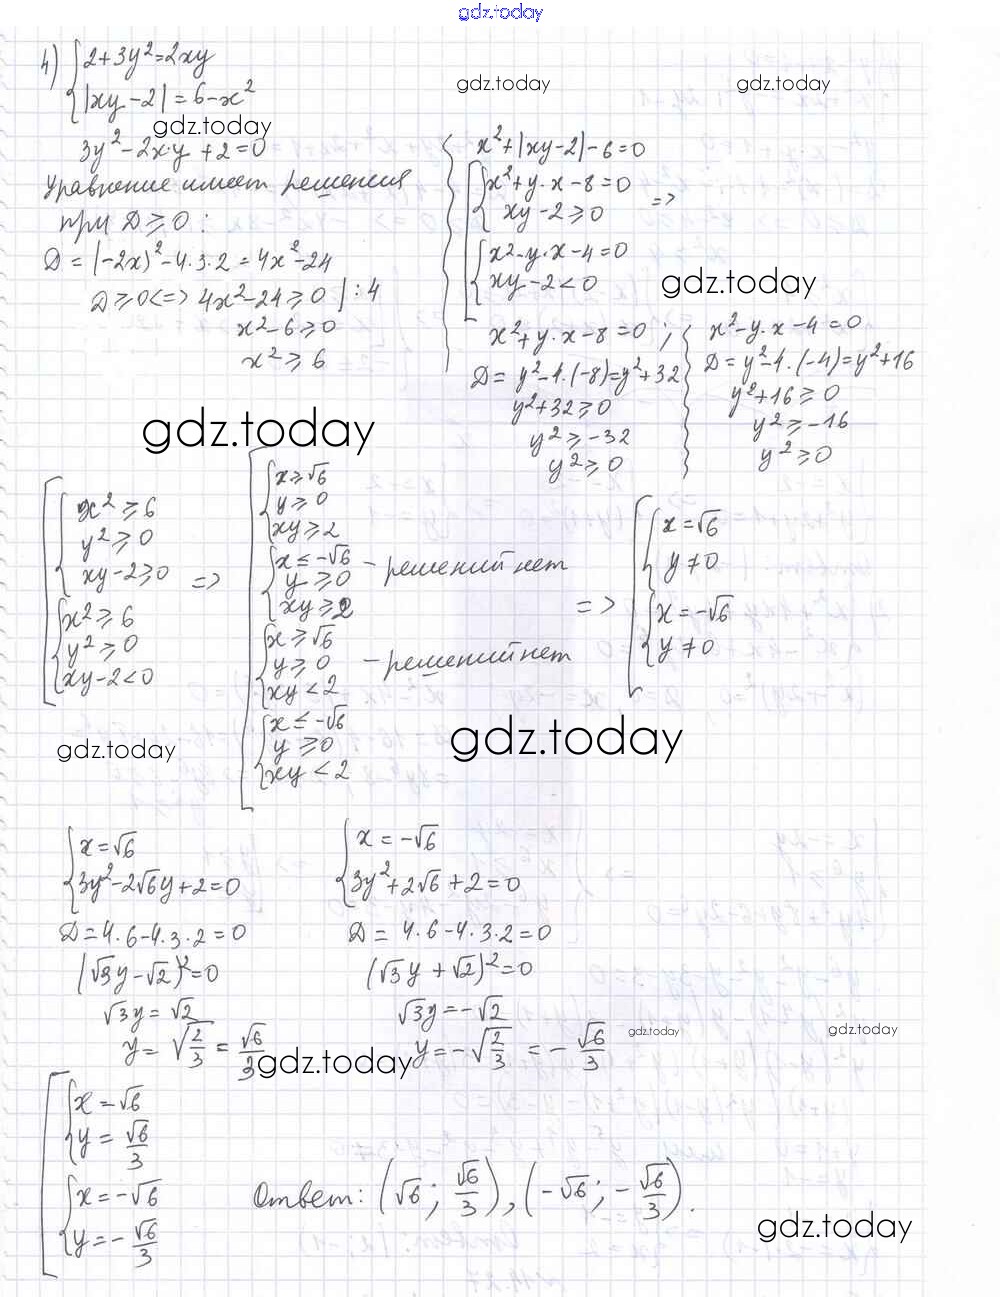 gdz.today
4) { 2+3y²=2xy
{ |xy-2|=6-x²
gdz.today
gdz.today
gdz.today
3y²-2x·y+2=0
Уравнение имеет решения
при D⩾0:
D=(-2x)²-4·3·2=4x²-24
D⩾0<=>4x²-24⩾0 |:4
x²-6⩾0
x²⩾6
x²+|xy-2|-6=0
x²+y·x-8=0
xy-2⩾0 =>
x²-y·x-4=0
xy-2<0
gdz.today
x²+y·x-8=0;
D=y²-4·(-8)=y²+32
y²+32⩾0
y²⩾-32
y²⩾0
x²-y·x-4=0
D=y²-4·(-4)=y²+16
y²+16⩾0
y²⩾-16
y²⩾0
gdz.today
x²⩾6
y²⩾0
xy-2⩾0
x²⩾6
y²⩾0
xy-2<0
=>
x⩾√6
y⩾0
xy⩾2
x⩽-√6
y⩾0 - решений нет
xy⩾2
x⩾√6
y⩾0 - решений нет
xy<2
x⩽-√6
y⩾0
xy<2
=>
x=√6
y≠0
x=-√6
y≠0
gdz.today
gdz.today
x=√6
3y²-2√6y+2=0
D=4·6-4·3·2=0
(√3y-√2)²=0
√3y=√2
y=√(2/3)=√6/3
x=-√6
3y²+2√6+2=0
D=4·6-4·3·2=0
(√3y+√2)²=0
√3y=-√2
y=-√(2/3)=-√6/3
gdz.today
gdz.today
gdz.today
x=√6
y=√6/3
x=-√6
y=-√6/3
Ответ: (√6; √6/3), (-√6; -√6/3).
gdz.today